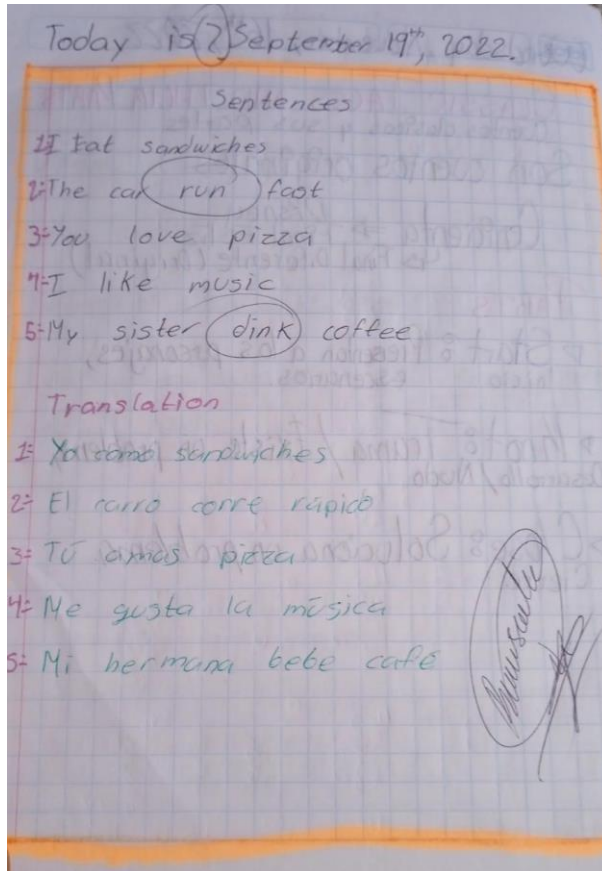 Today is ? September 19th, 2022.
Sentences
1= I Eat sandwiches
2= The car run fast
3= You love pizza
4= I like music
5= My sister dink coffee
Translation
1= Yo como sandwiches
2= El carro corre rápido
3= Tú amas pizza
4= Me gusta la música
5= Mi hermana bebe café